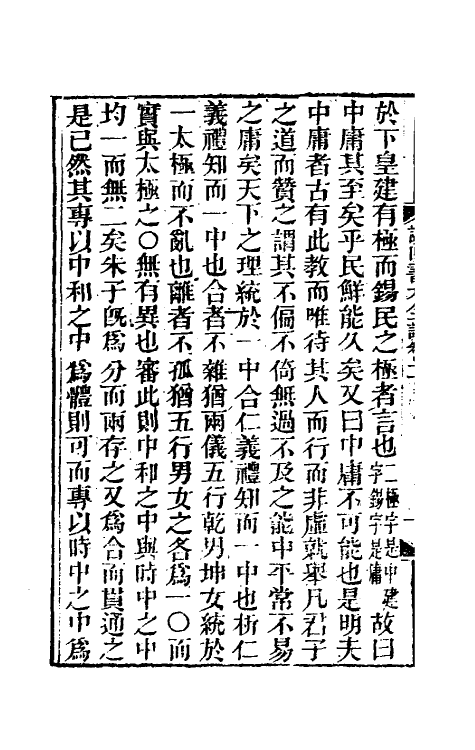 於下皇建有極而錫民之極者言也二極字是中建字錫字是庸故曰
中庸其至矣乎民鮮能久矣又曰中庸不可能也是明夫
中庸者古有此教而唯待其人而行而非虛就舉凡君子
之道而贊之謂其不偏不倚無過不及之能中平常不易
之庸矣天下之理統於一中合仁義禮知而一中也析仁
義禮知而一中也合者不雜猶兩儀五行乾男坤女統於
一太極而不亂也離者不孤猶五行男女之各為一〇而
實與太極之〇無有異也審此則中和之中與時中之中
均一而無二矣朱子旣為分而兩存之又為合而貫通之
是已然其專以中和之中為體則可而專以時中之中為